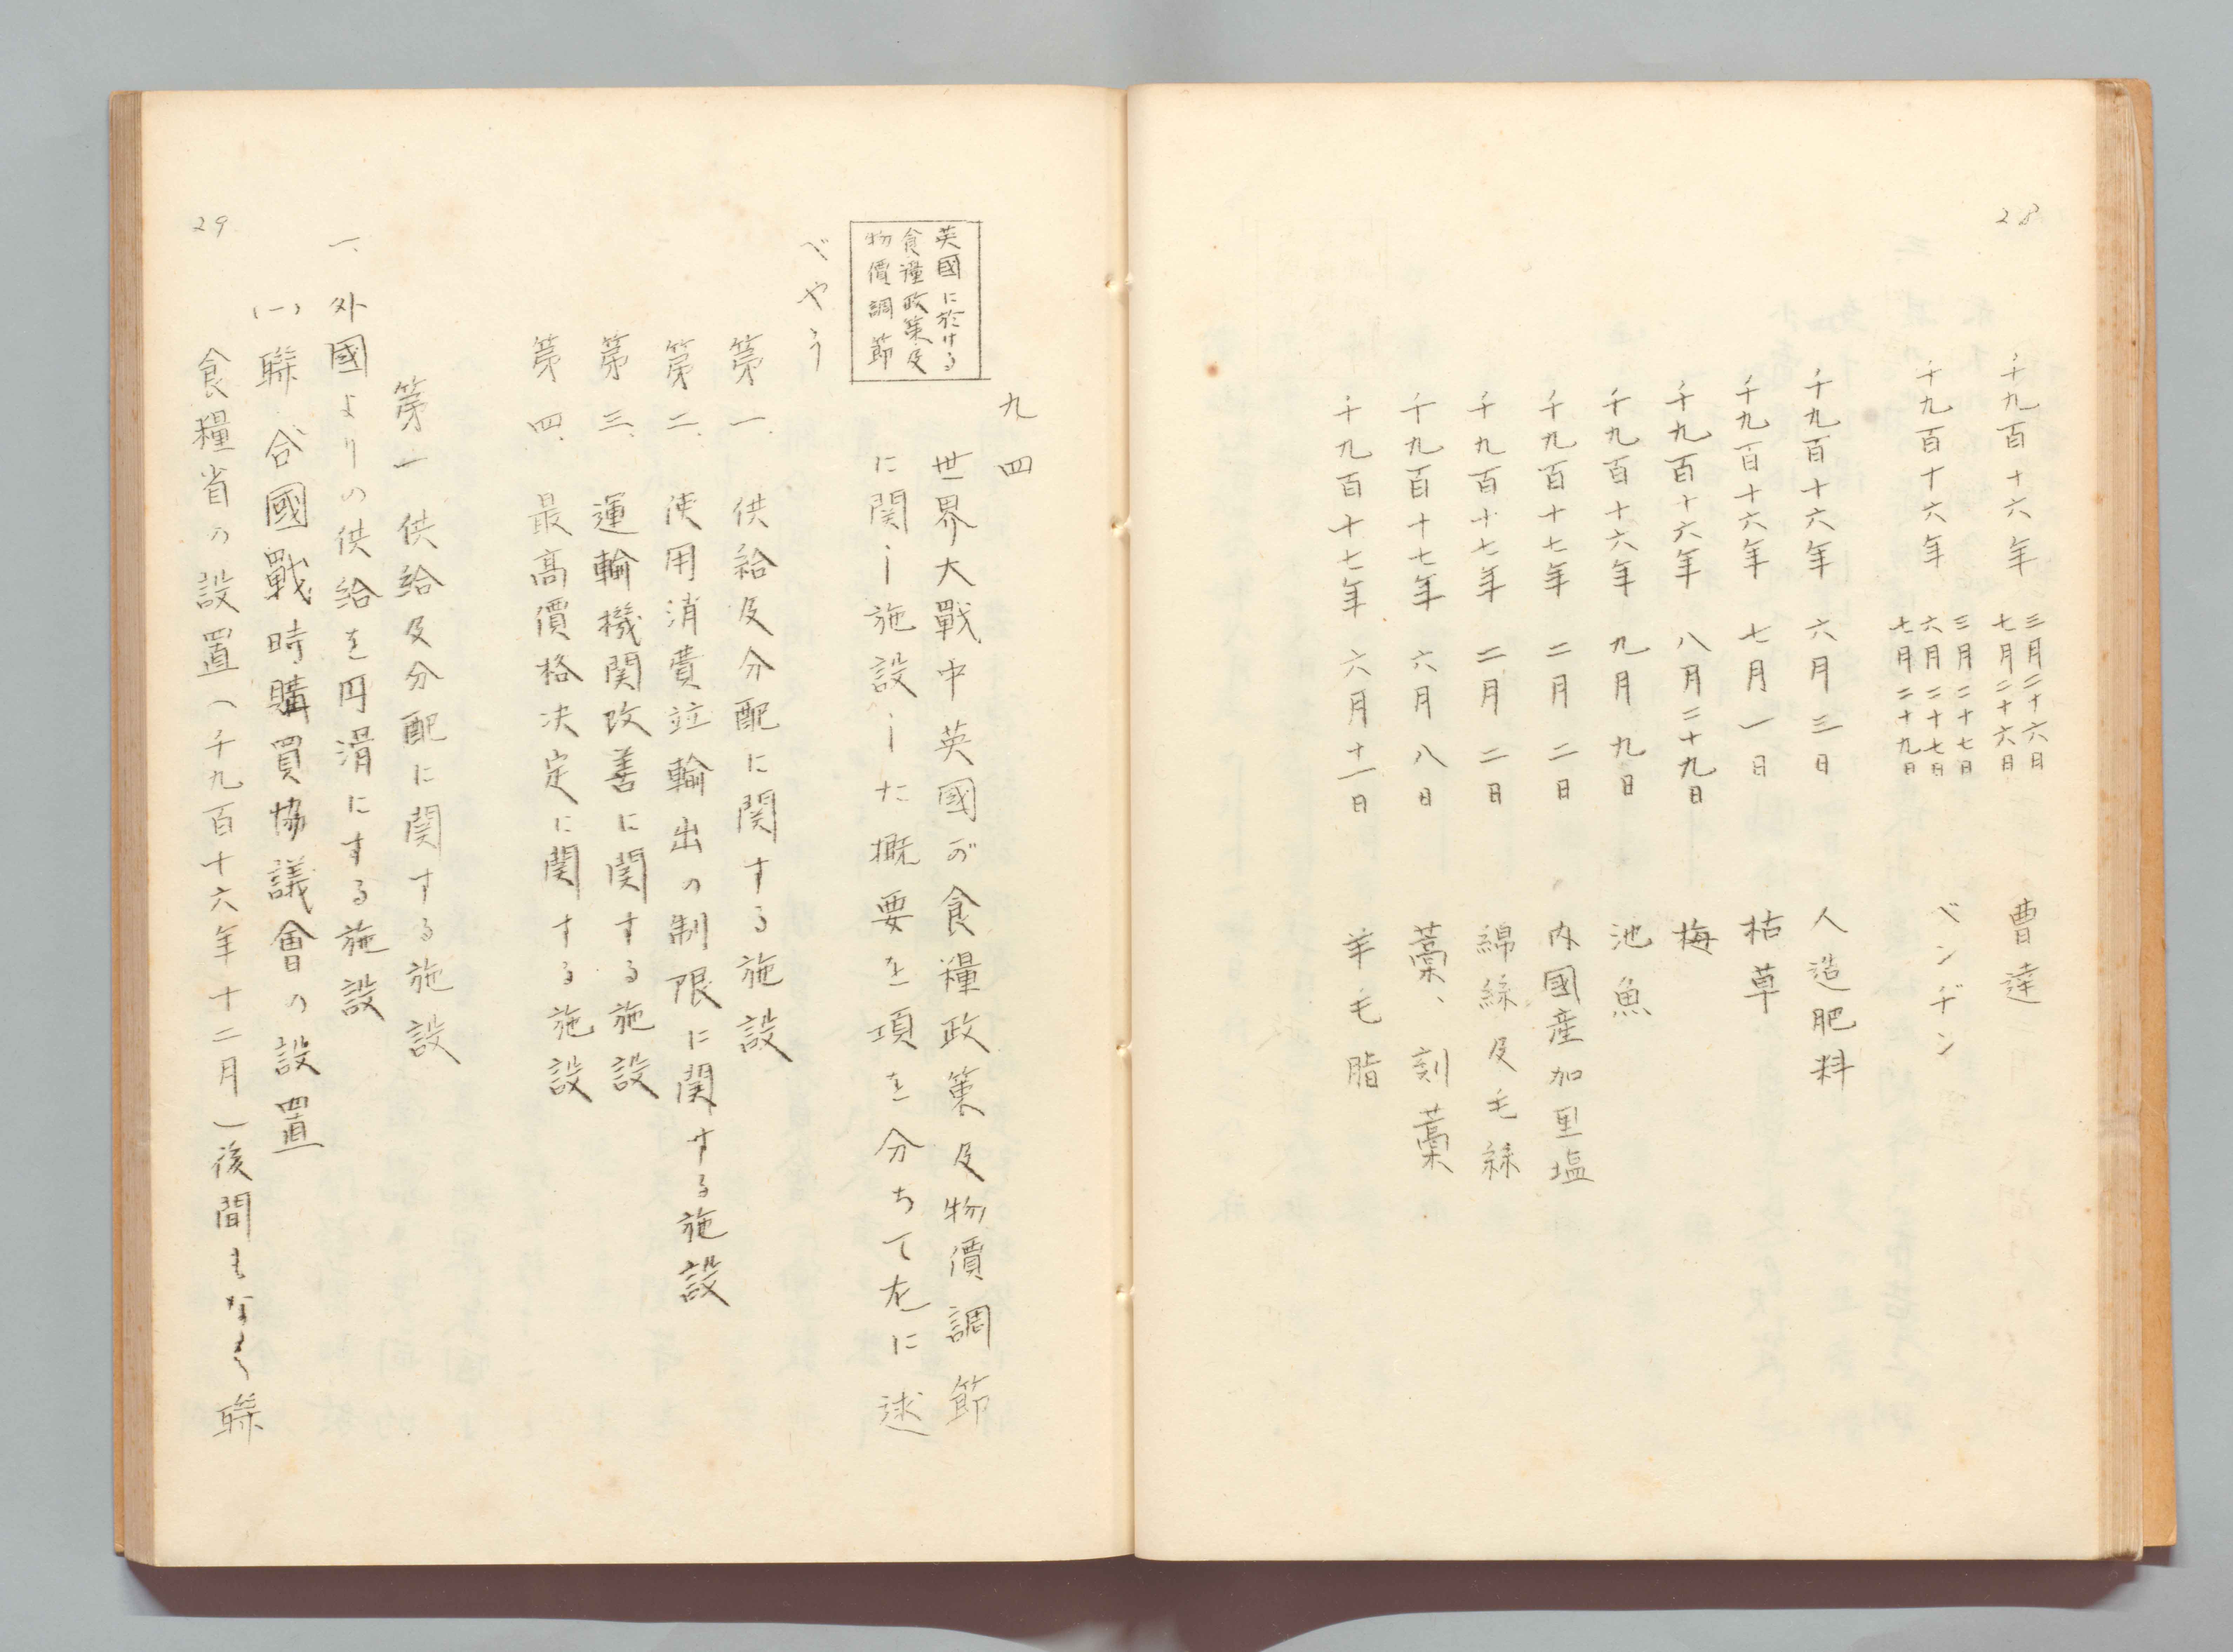 28
千九百十六年 三月二十六日 七月二十六日 曹達
千九百十六年 三月二十七日 六月二十七日 七月二十九日 ベンヂン
千九百十六年 六月三日 人造肥料
千九百十六年 七月一日 枯草
千九百十六年 八月二十九日 梅
千九百十六年 九月九日 池魚
千九百十七年 二月二日 内國産加里塩
千九百十七年 二月二日 綿絲及毛絲
千九百十七年 六月八日 藁、刻藁
千九百十七年 六月十一日 羊毛脂
九四
英國に於ける
食糧政策及
物價調節
世界大戰中英國が食糧政策及物價調節
に関し施設した概要を項を分ちて左に述
べやう
第一、供給及分配に関する施設
第二、使用消費竝輸出の制限に関する施設
第三、運輸機関改善に関する施設
第四、最高價格決定に関する施設
第一 供給及分配に関する施設
一、外國よりの供給を円滑にする施設
(一)聯合國戰時購買協議會の設置
食糧省の設置(千九百十六年十二月)後間もなく聯
29